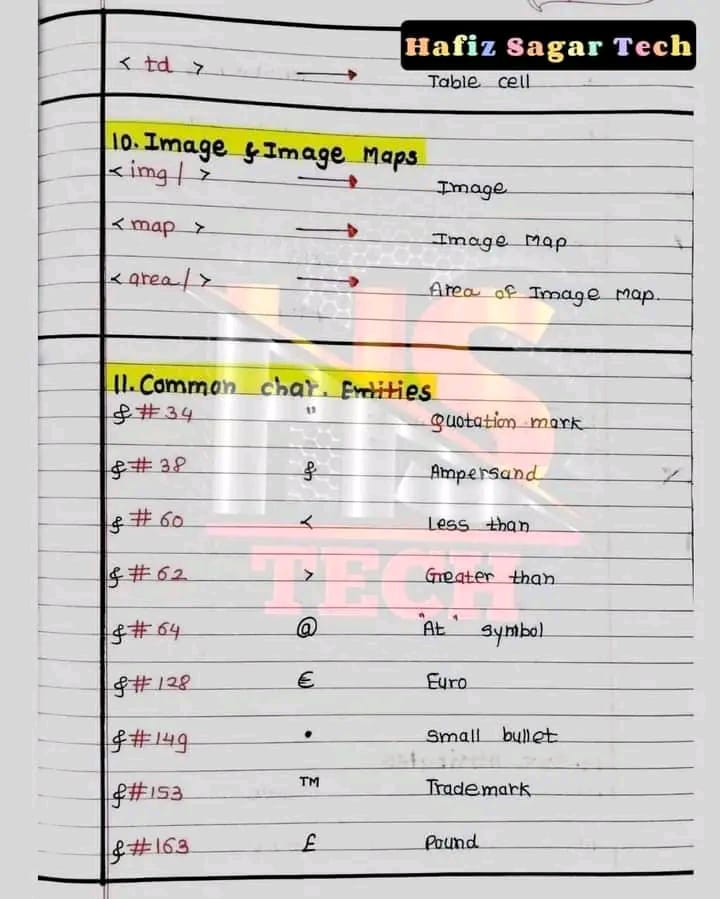 Hafiz Sagar Tech
< td > → Table cell
10. Image & Image Maps
< img / > → Image
< map > → Image Map
< area / > → Area of Image Map.
11. Common char. Entities
&#34 " quotation mark
&#38 & Ampersand
&#60 < Less than
&#62 > Greater than
&#64 @ "At" symbol
&#128 € Euro
&#149 • small bullet
&#153 ™ Trademark
&#163 £ Pound
HS
TECH